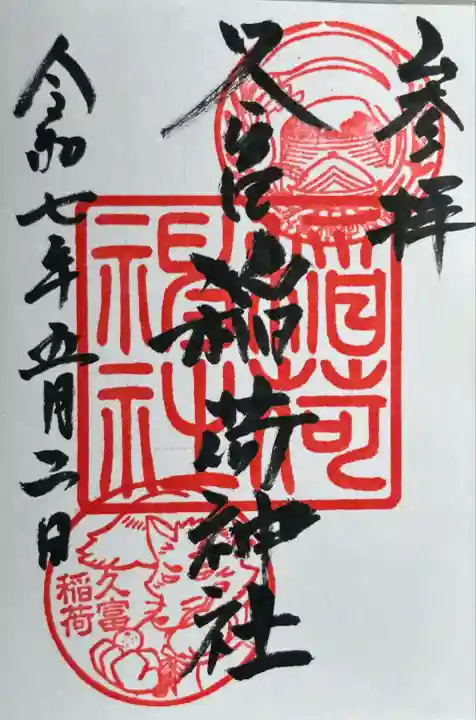 参拝
久富稲荷神社
令和七年五月二日
稲荷
神社
久富
稲荷